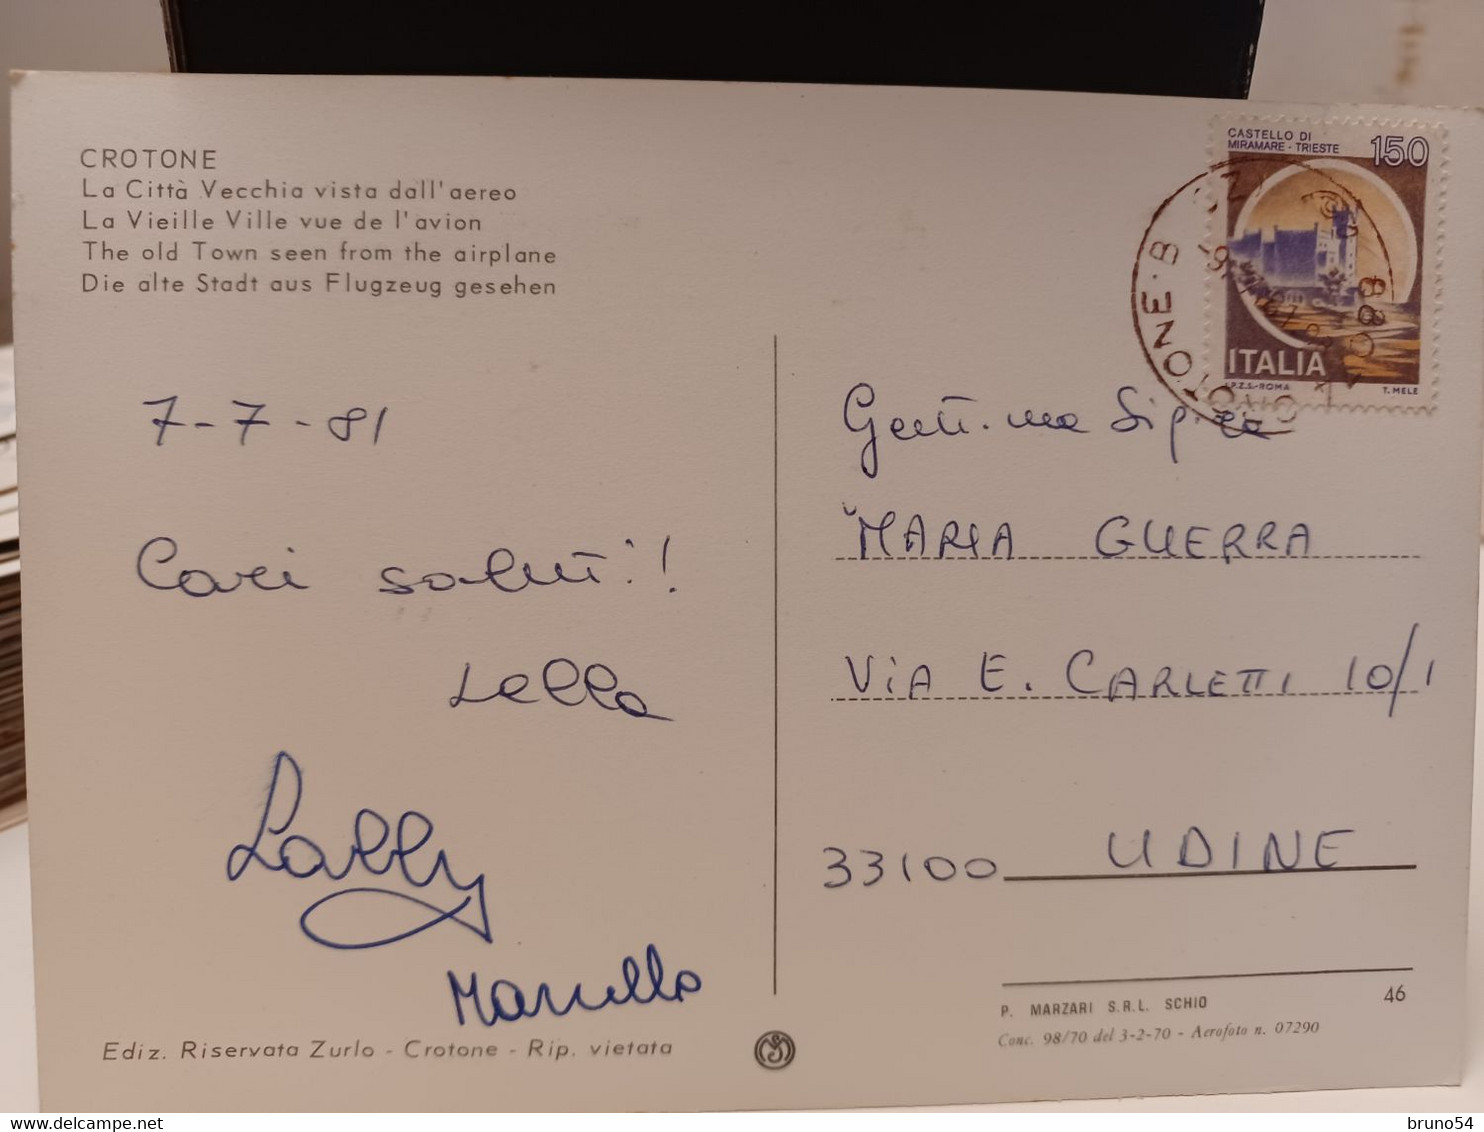 CROTONE
La Città Vecchia vista dall'aereo
La Vieille Ville vue de l'avion
The old Town seen from the airplane
Die alte Stadt aus Flugzeug gesehen
7-7-81
Cari saluti!
Lella
Lally
Marcello
Ediz. Riservata Zurlo - Crotone - Rip. vietata
CASTELLO DI
MIRAMARE - TRIESTE
150
ITALIA
I.P.Z.S.-ROMA T. MELE
Gent.ma Sig.ra
MARIA GUERRA
VIA E. CARLETTI 10/1
33100 UDINE
P. MARZARI S.R.L. SCHIO
46
Conc. 98/70 del 3-2-70 - Aerofoto n. 07290
bruno54